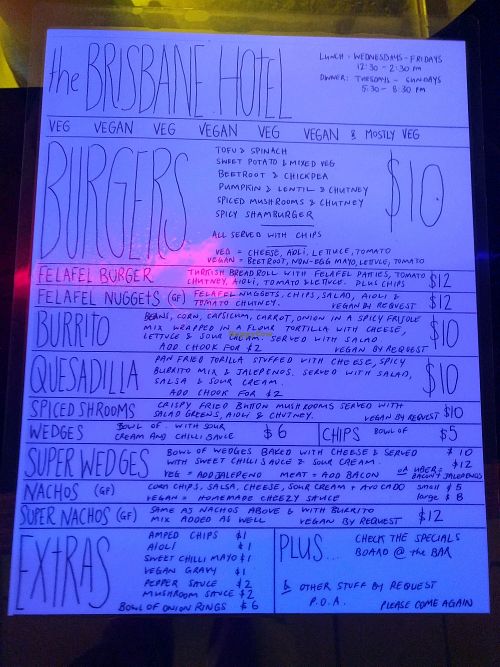 the BRISBANE HOTEL
LUNCH: WEDNESDAYS - FRIDAYS
12:30 - 2:30 PM
DINNER: TUESDAYS - SUNDAYS
5:30 - 8:30 PM
VEG VEGAN VEG VEGAN VEG VEGAN & MOSTLY VEG
BURGERS
TOFU & SPINACH
SWEET POTATO & MIXED VEG
BEETROOT & CHICKPEA
PUMPKIN & LENTIL & CHUTNEY
SPICED MUSHROOMS & CHUTNEY
SPICY SHAMBURGER
$10
ALL SERVED WITH CHIPS
VEG = CHEESE, AIOLI, LETTUCE, TOMATO
VEGAN = BEETROOT, NON-EGG MAYO, LETTUCE, TOMATO
FELAFEL BURGER
TURKISH BREAD ROLL WITH FELAFEL PATTIES, TOMATO
CHUTNEY, AIOLI, TOMATO & LETTUCE. PLUS CHIPS
$12
FELAFEL NUGGETS (GF)
FELAFEL NUGGETS, CHIPS, SALAD, AIOLI &
TOMATO CHUTNEY. VEGAN BY REQUEST
$12
BURRITO
BEANS, CORN, CAPSICUM, CARROT, ONION IN A SPICY FRIJOLE
MIX WRAPPED IN A FLOUR TORTILLA WITH CHEESE,
LETTUCE & SOUR CREAM. SERVED WITH SALAD
ADD CHOOK FOR $2 VEGAN BY REQUEST
$10
QUESADILLA
PAN FRIED TORILLA STUFFED WITH CHEESE, SPICY
BURRITO MIX & JALEPENOS. SERVED WITH SALAD,
SALSA & SOUR CREAM.
ADD CHOOK FOR $2
$10
SPICED SHROOMS
CRISPY FRIED BUTTON MUSHROOMS SERVED WITH
SALAD GREENS, AIOLI & CHUTNEY. VEGAN BY REQUEST
$10
WEDGES
BOWL OF. WITH SOUR
CREAM AND CHILLI SAUCE
$6
CHIPS BOWL OF $5
SUPER WEDGES
BOWL OF WEDGES BAKED WITH CHEESE & SERVED
WITH SWEET CHILLI SAUCE & SOUR CREAM.
VEG = ADD JALEPENO MEAT = ADD BACON
$10
OR UBER = $12
BACON & JALAPENOS
NACHOS (GF)
CORN CHIPS, SALSA, CHEESE, SOUR CREAM + AVOCADO
VEGAN = HOMEMADE CHEEZY SAUCE
small $5
large $8
SUPER NACHOS (GF)
SAME AS NACHOS ABOVE & WITH BURRITO
MIX ADDED AS WELL VEGAN BY REQUEST
$12
EXTRAS
AMPED CHIPS $1
AIOLI $1
SWEET CHILLI MAYO $1
VEGAN GRAVY $1
PEPPER SAUCE $2
MUSHROOM SAUCE $2
BOWL OF ONION RINGS $6
PLUS...
CHECK THE SPECIALS
BOARD @ the BAR
& OTHER STUFF BY REQUEST
P.O.A. PLEASE COME AGAIN